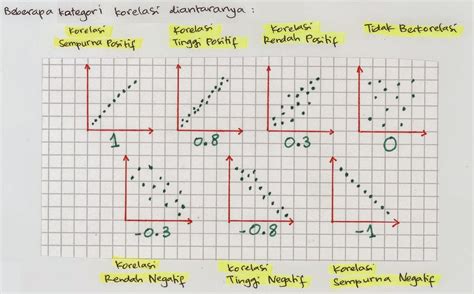 Beberapa kategori korelasi diantaranya :
Korelasi
Sempurna Positif
Korelasi
Tinggi Positif
Korelasi
Rendah Positif
Tidak Berkorelasi
1
0.8
0.3
0
-0.3
-0.8
-1
Korelasi
Rendah Negatif
Korelasi
Tinggi Negatif
Korelasi
Sempurna Negatif